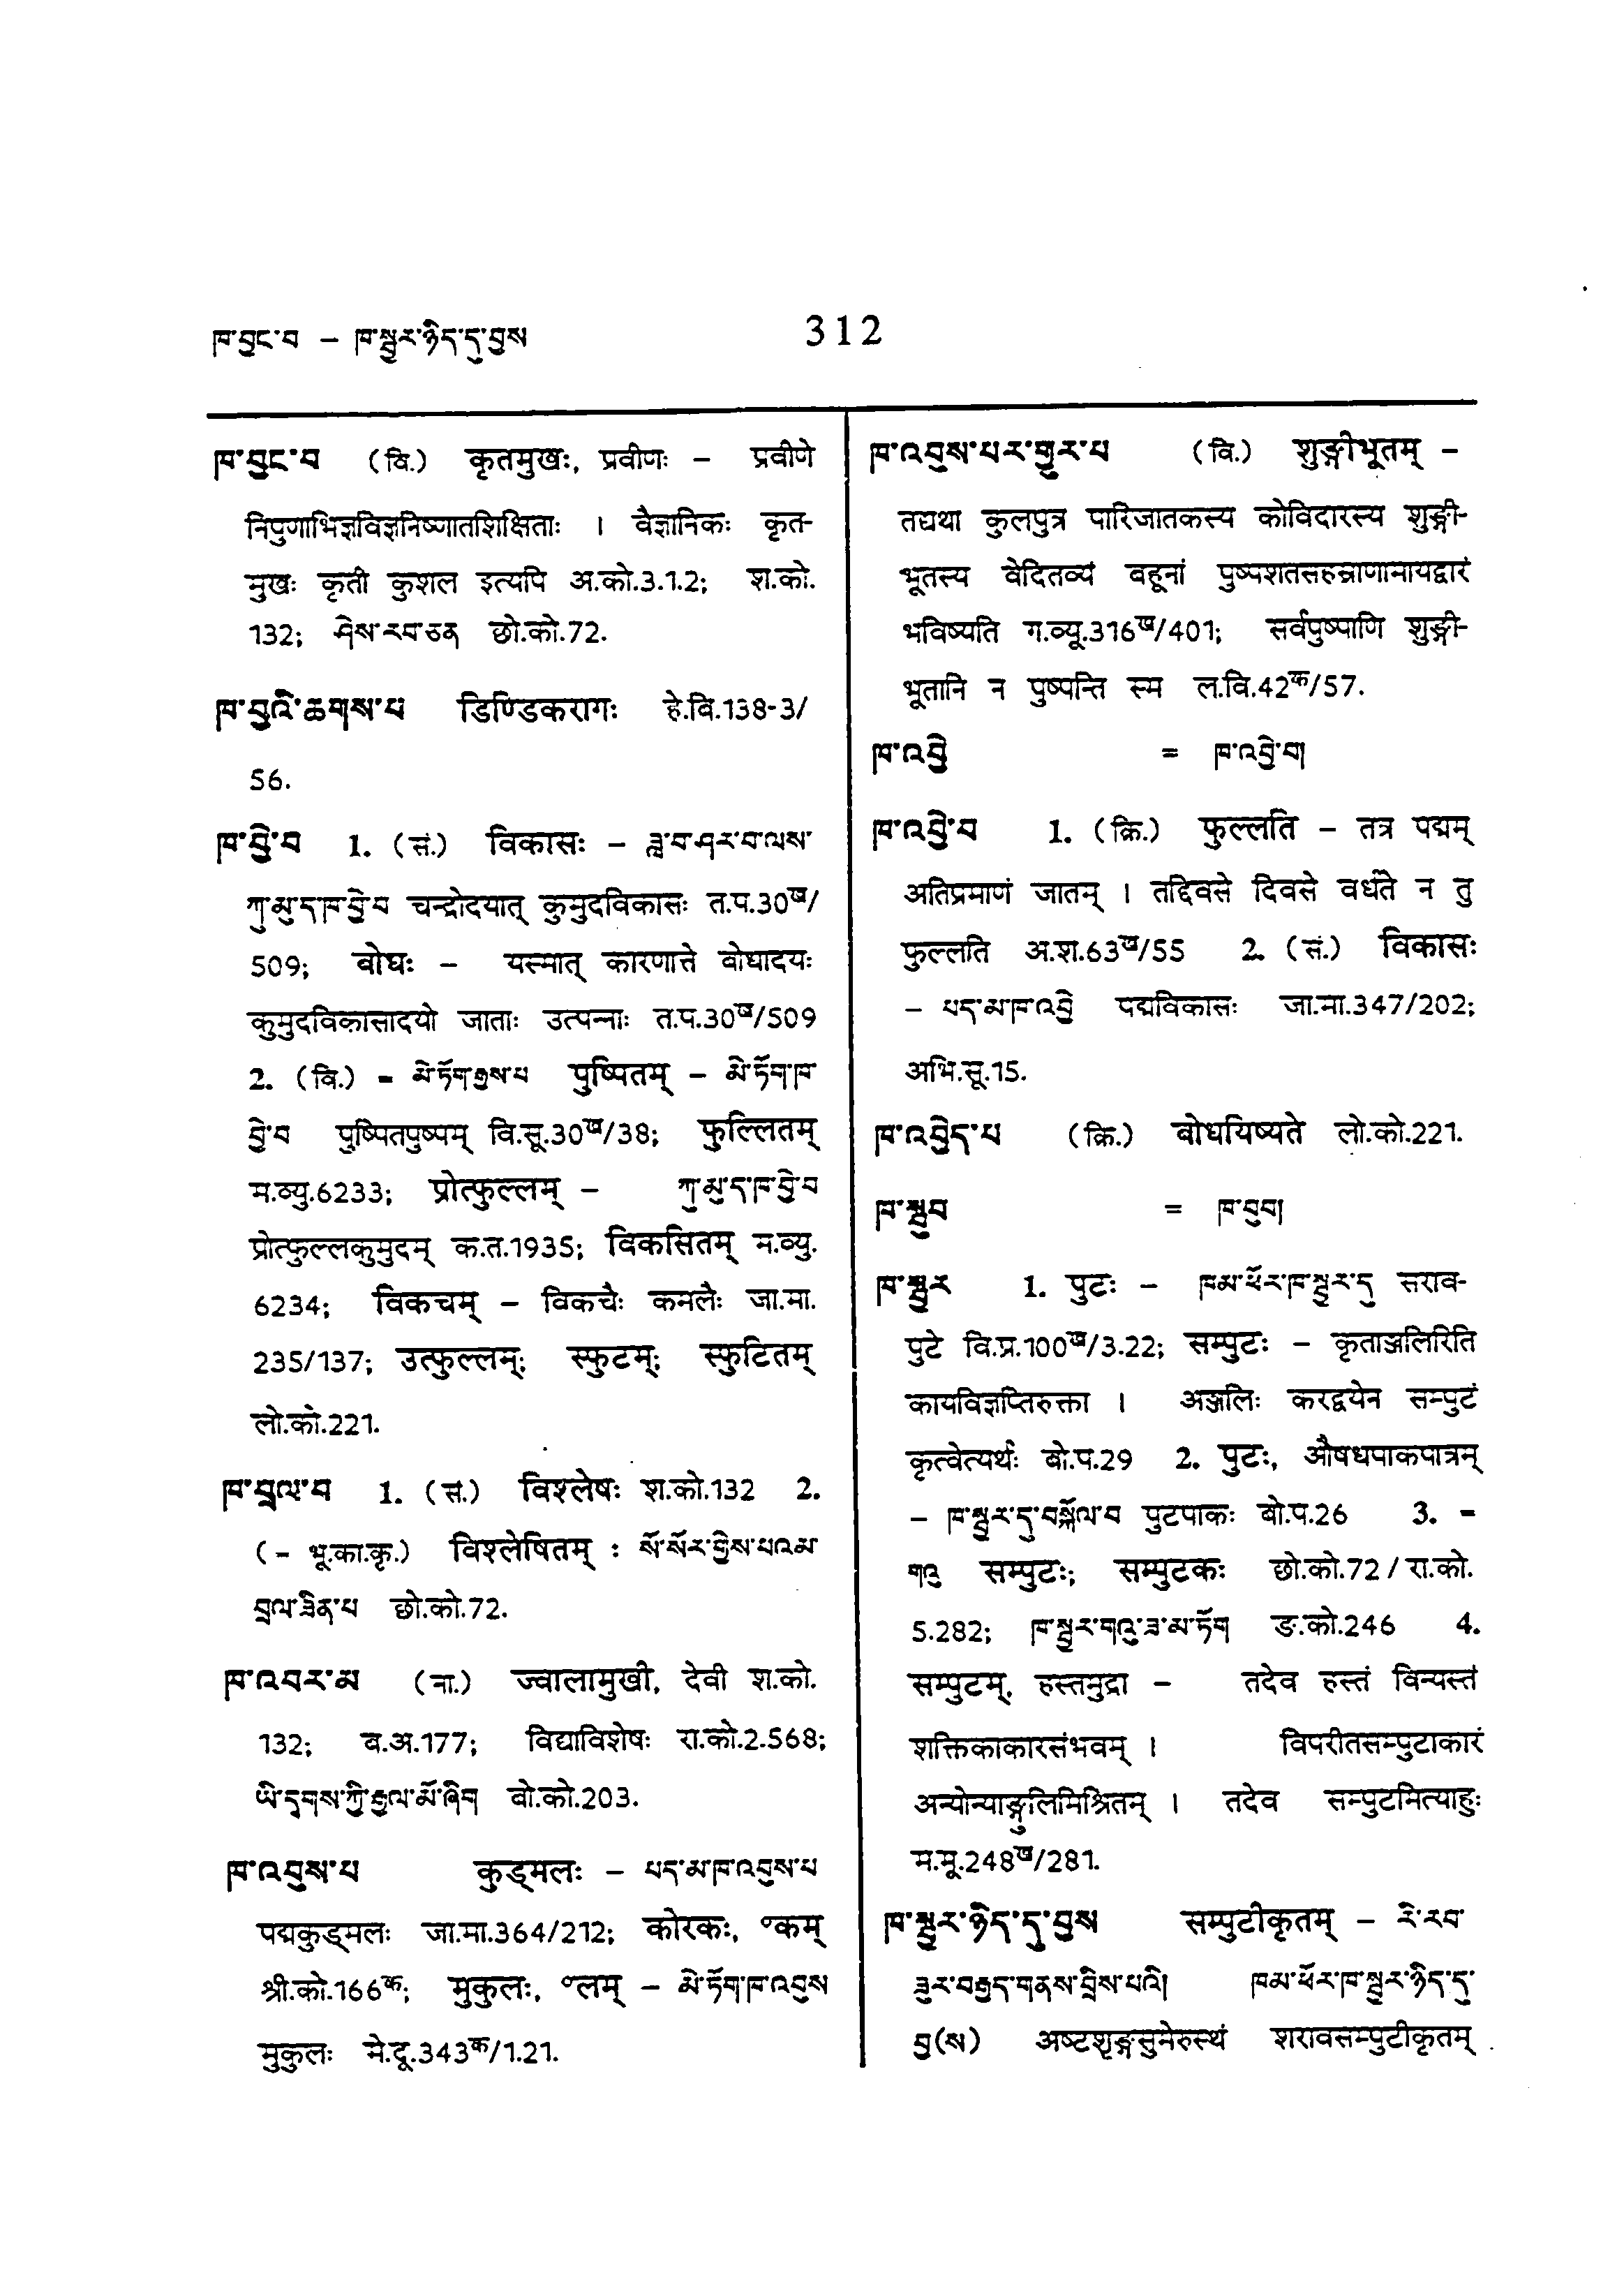 ཁ་བྱང་བ – ཁ་སྦྱར་ཉིད་དུ་བྱས
312
ཁ་བྱང་བ (वि.) कृतमुखः, प्रवीणः – प्रवीणे
निपुणाभिज्ञविज्ञनिष्णातशिक्षिताः । वैज्ञानिकः कृत-
मुखः कृती कुशल इत्यपि अ.को.3.1.2; श.को.
132; ཤེས་རབ་ཅན छो.को.72.
ཁ་བྱའི་ཆགས་པ डिण्डिकरागः हे.बि.138-3/
56.
ཁ་བྱེ་བ 1. (सं.) विकासः – ཟླ་བ་ཤར་བ་ལས་
ཀུ་མུ་ད་ཁ་བྱེ་བ चन्द्रोदयात् कुमुदविकासः त.प.30ख/
509; बोधः – यस्मात् कारणात्ते बोधादयः
कुमुदविकासादयो जाताः उत्पन्नाः त.प.30ख/509
2. (वि.) = མེ་ཏོག་རྒྱས་པ पुष्पितम् – མེ་ཏོག་ཁ་
བྱེ་བ पुष्पितपुष्पम् वि.सू.30ख/38; फुल्लितम्
म.व्यु.6233; प्रोत्फुल्लम् – ཀུ་མུ་ད་ཁ་བྱེ་བ
प्रोत्फुल्लकुमुदम् क.त.1935; विकसितम् म.व्यु.
6234; विकचम् – विकचैः कमलैः जा.मा.
235/137; उत्फुल्लम्; स्फुटम्; स्फुटितम्
लो.को.221.
ཁ་བྲལ་བ 1. (सं.) विश्लेषः श.को.132 2.
(– भू.का.कृ.) विश्लेषितम् : སོ་སོར་གྱེས་པའམ
བྲལ་ཟིན་པ छो.को.72.
ཁ་འབར་མ (ना.) ज्वालामुखी, देवी श.को.
132; ब.अ.177; विद्याविशेषः रा.को.2.568;
ཡི་དྭགས་ཀྱི་རྒྱལ་མོ་ཞིག बो.को.203.
ཁ་འབུས་པ कुड्मलः – པད་མ་ཁ་འབུས་པ
पद्मकुड्मलः जा.मा.364/212; कोरकः, °कम्
श्री.को.166क; मुकुलः, °लम् – མེ་ཏོག་ཁ་འབུས
मुकुलः मे.दू.343क/1.21.
ཁ་འབུས་པར་གྱུར་པ (वि.) शुङ्गीभूतम् –
तद्यथा कुलपुत्र पारिजातकस्य कोविदारस्य शुङ्गी-
भूतस्य वेदितव्यं बहूनां पुष्पशतसहस्राणामायद्वारं
भविष्यति ग.व्यू.316ख/401; सर्वपुष्पाणि शुङ्गी-
भूतानि न पुष्पन्ति स्म ल.वि.42क/57.
ཁ་འབྱེ = ཁ་འབྱེ་བ།
ཁ་འབྱེ་བ 1. (क्रि.) फुल्लति – तत्र पद्मम्
अतिप्रमाणं जातम् । तद्दिवसे दिवसे वर्धते न तु
फुल्लति अ.श.63ख/55 2. (सं.) विकासः
– པད་མ་ཁ་འབྱེ पद्मविकासः जा.मा.347/202;
अभि.सू.15.
ཁ་འབྱེད་པ (क्रि.) बोधयिष्यते लो.को.221.
ཁ་སྦུབ = ཁ་བུབ།
ཁ་སྦྱར 1. पुटः – ཁམ་ཕོར་ཁ་སྦྱར་དུ सराव-
पुटे वि.प्र.100ख/3.22; सम्पुटः – कृताञ्जलिरिति
कायविज्ञप्तिरुक्ता । अञ्जलिः करद्वयेन सम्पुटं
कृत्वेत्यर्थः बो.प.29 2. पुटः, औषधपाकपात्रम्
– ཁ་སྦྱར་དུ་བསྐོལ་བ पुटपाकः बो.प.26 3. =
གའུ सम्पुटः; सम्पुटकः छो.को.72 / रा.को.
5.282; ཁ་སྦྱར་གའུ་ཟ་མ་ཏོག ङ.को.246 4.
सम्पुटम्, हस्तमुद्रा – तदेव हस्तं विन्यस्तं
शक्तिकाकारसंभवम् । विपरीतसम्पुटाकारं
अन्योन्याङ्गुलिमिश्रितम् । तदेव सम्पुटमित्याहुः
म.मू.248ख/281.
ཁ་སྦྱར་ཉིད་དུ་བྱས सम्पुटीकृतम् – རི་རབ་
ཟུར་བརྒྱད་གནས་བྲིས་པའི། ཁམ་ཕོར་ཁ་སྦྱར་ཉིད་དུ་
བྱ(ས) अष्टशृङ्गसुमेरुस्थं शरावसम्पुटीकृतम्